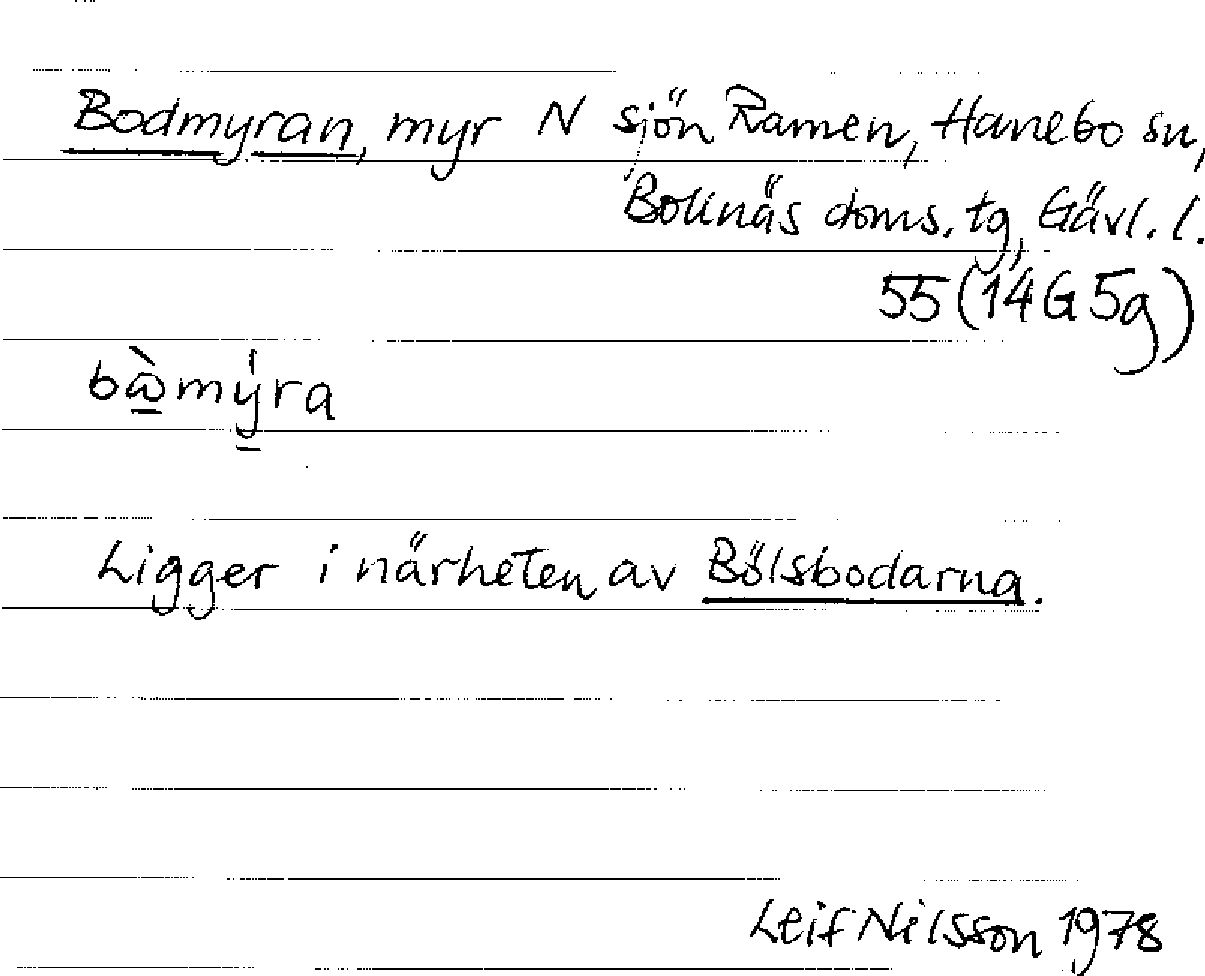 Bodmyran, myr N sjön Ramen, Hanebo sn,
Bollnäs doms. tg, Gävl. l.
55 (14G 5g)
bàmýra
Ligger i närheten av Bölsbodarna.
Leif Nilsson 1978